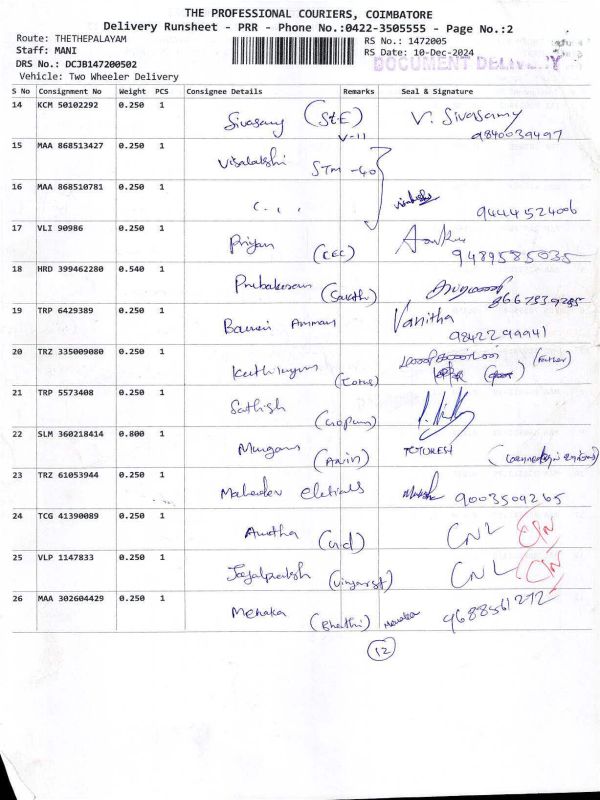 THE PROFESSIONAL COURIERS, COIMBATORE
Delivery Runsheet - PRR - Phone No.:0422-3505555 - Page No.:2
Route: THETHEPALAYAM RS No.: 1472005
Staff: MANI RS Date: 10-Dec-2024
DRS No.: DCJB147200502 DOCUMENT DELIVERY
Vehicle: Two Wheeler Delivery
S No Consignment No Weight PCS Consignee Details Remarks Seal & Signature
14 KCM 50102292 0.250 1 Sivasamy (StE) V. Sivasamy
V-11 9840039497
15 MAA 868513427 0.250 1 Visalakshi STM -40
16 MAA 868510781 0.250 1
9444524006
17 VLI 90986 0.250 1 Priyan (CEC)
9489585035
18 HRD 399462280 0.540 1 Prabakaran (Sakthi)
8667539285
19 TRP 6429389 0.250 1 Bannari Amman Vanitha
9842299941
20 TRZ 335009080 0.250 1 (Lotus) (Father)
21 TRP 5573408 0.250 1 Sathish
22 SLM 360218414 0.800 1 Murgan
23 TRZ 61053944 0.250 1 Mahadev 9003509265
24 TCG 41390089 0.250 1 CNL
25 VLP 1147833 0.250 1 CNL
26 MAA 302604429 0.250 1 Menaka Menaka 9688561272
12